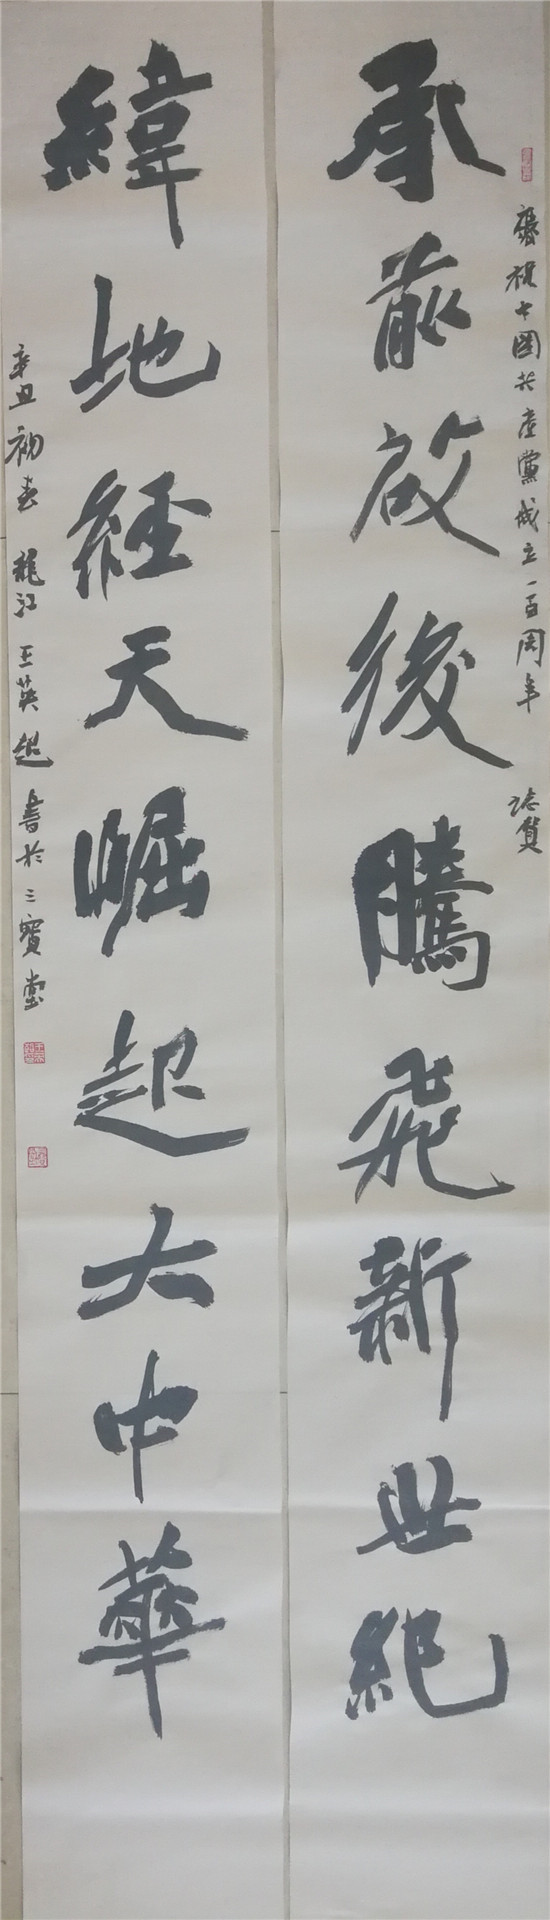 慶祝中國共產黨成立一百周年 誌賀
承前啟後騰飛新世紀
緯地經天崛起大中華
辛丑初春 龍江 王英超 書於三寶堂